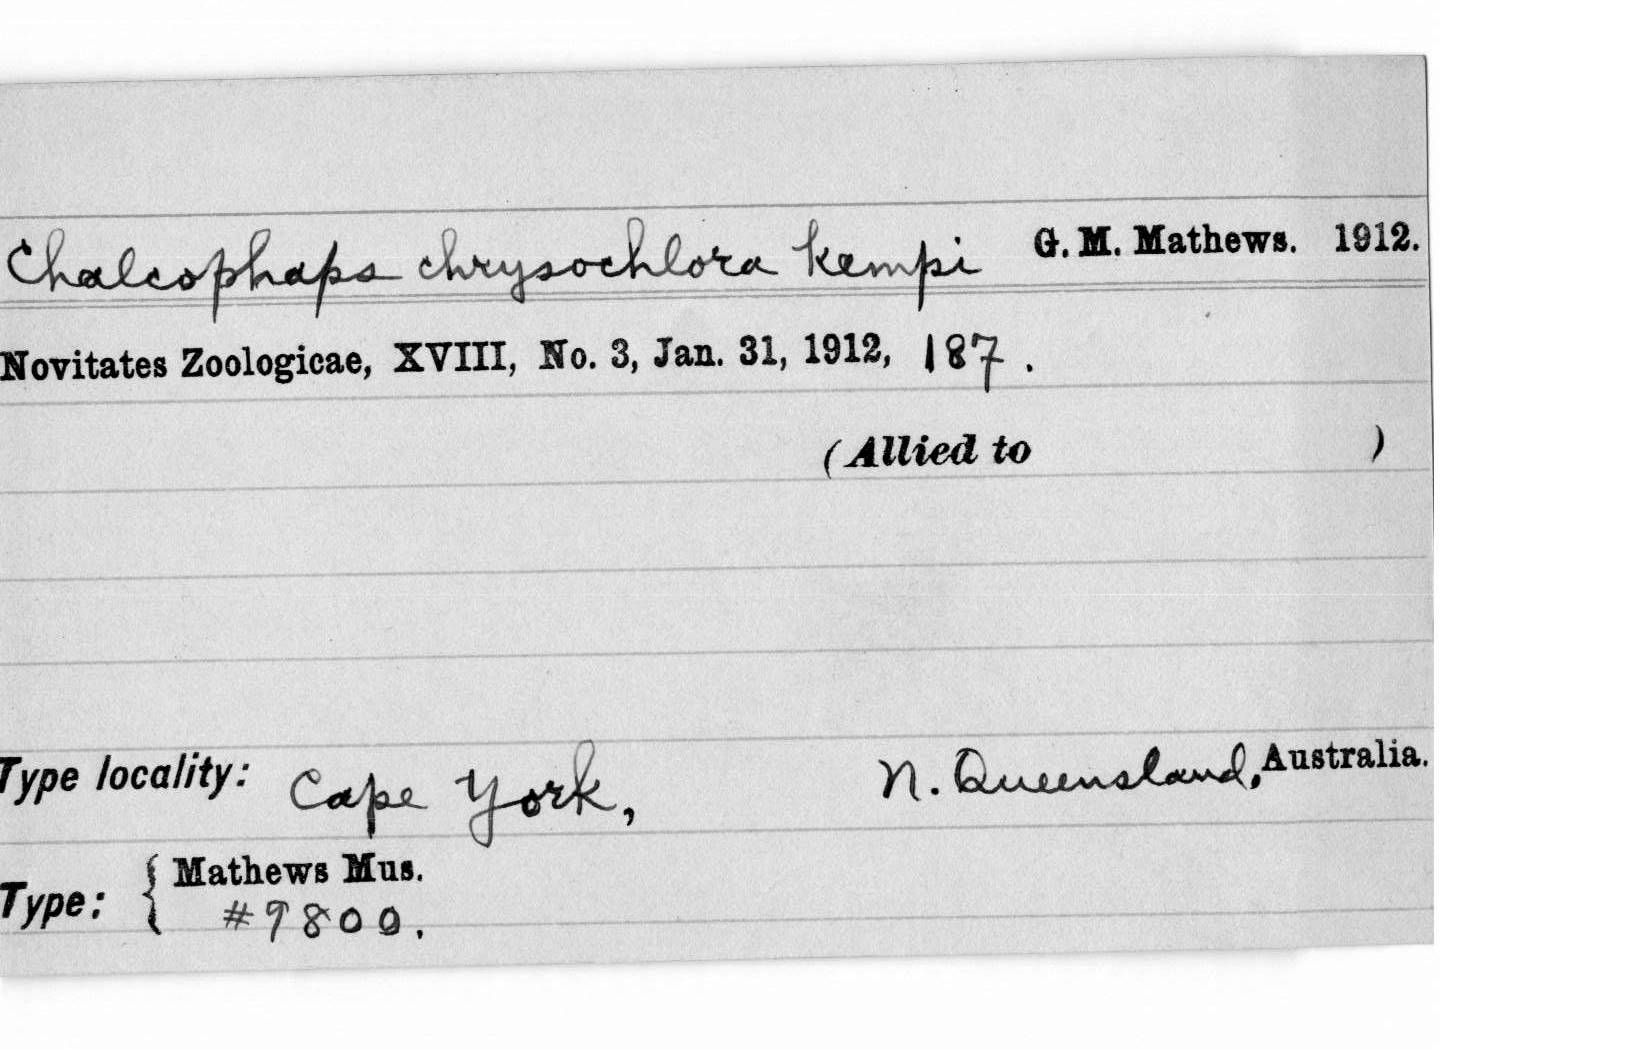 Chalcophaps chrysochlora kempi G. M. Mathews. 1912.
Novitates Zoologicae, XVIII, No. 3, Jan. 31, 1912, 187.
(Allied to )
Type locality: Cape York, N. Queensland, Australia.
Type: { Mathews Mus.
#9800.